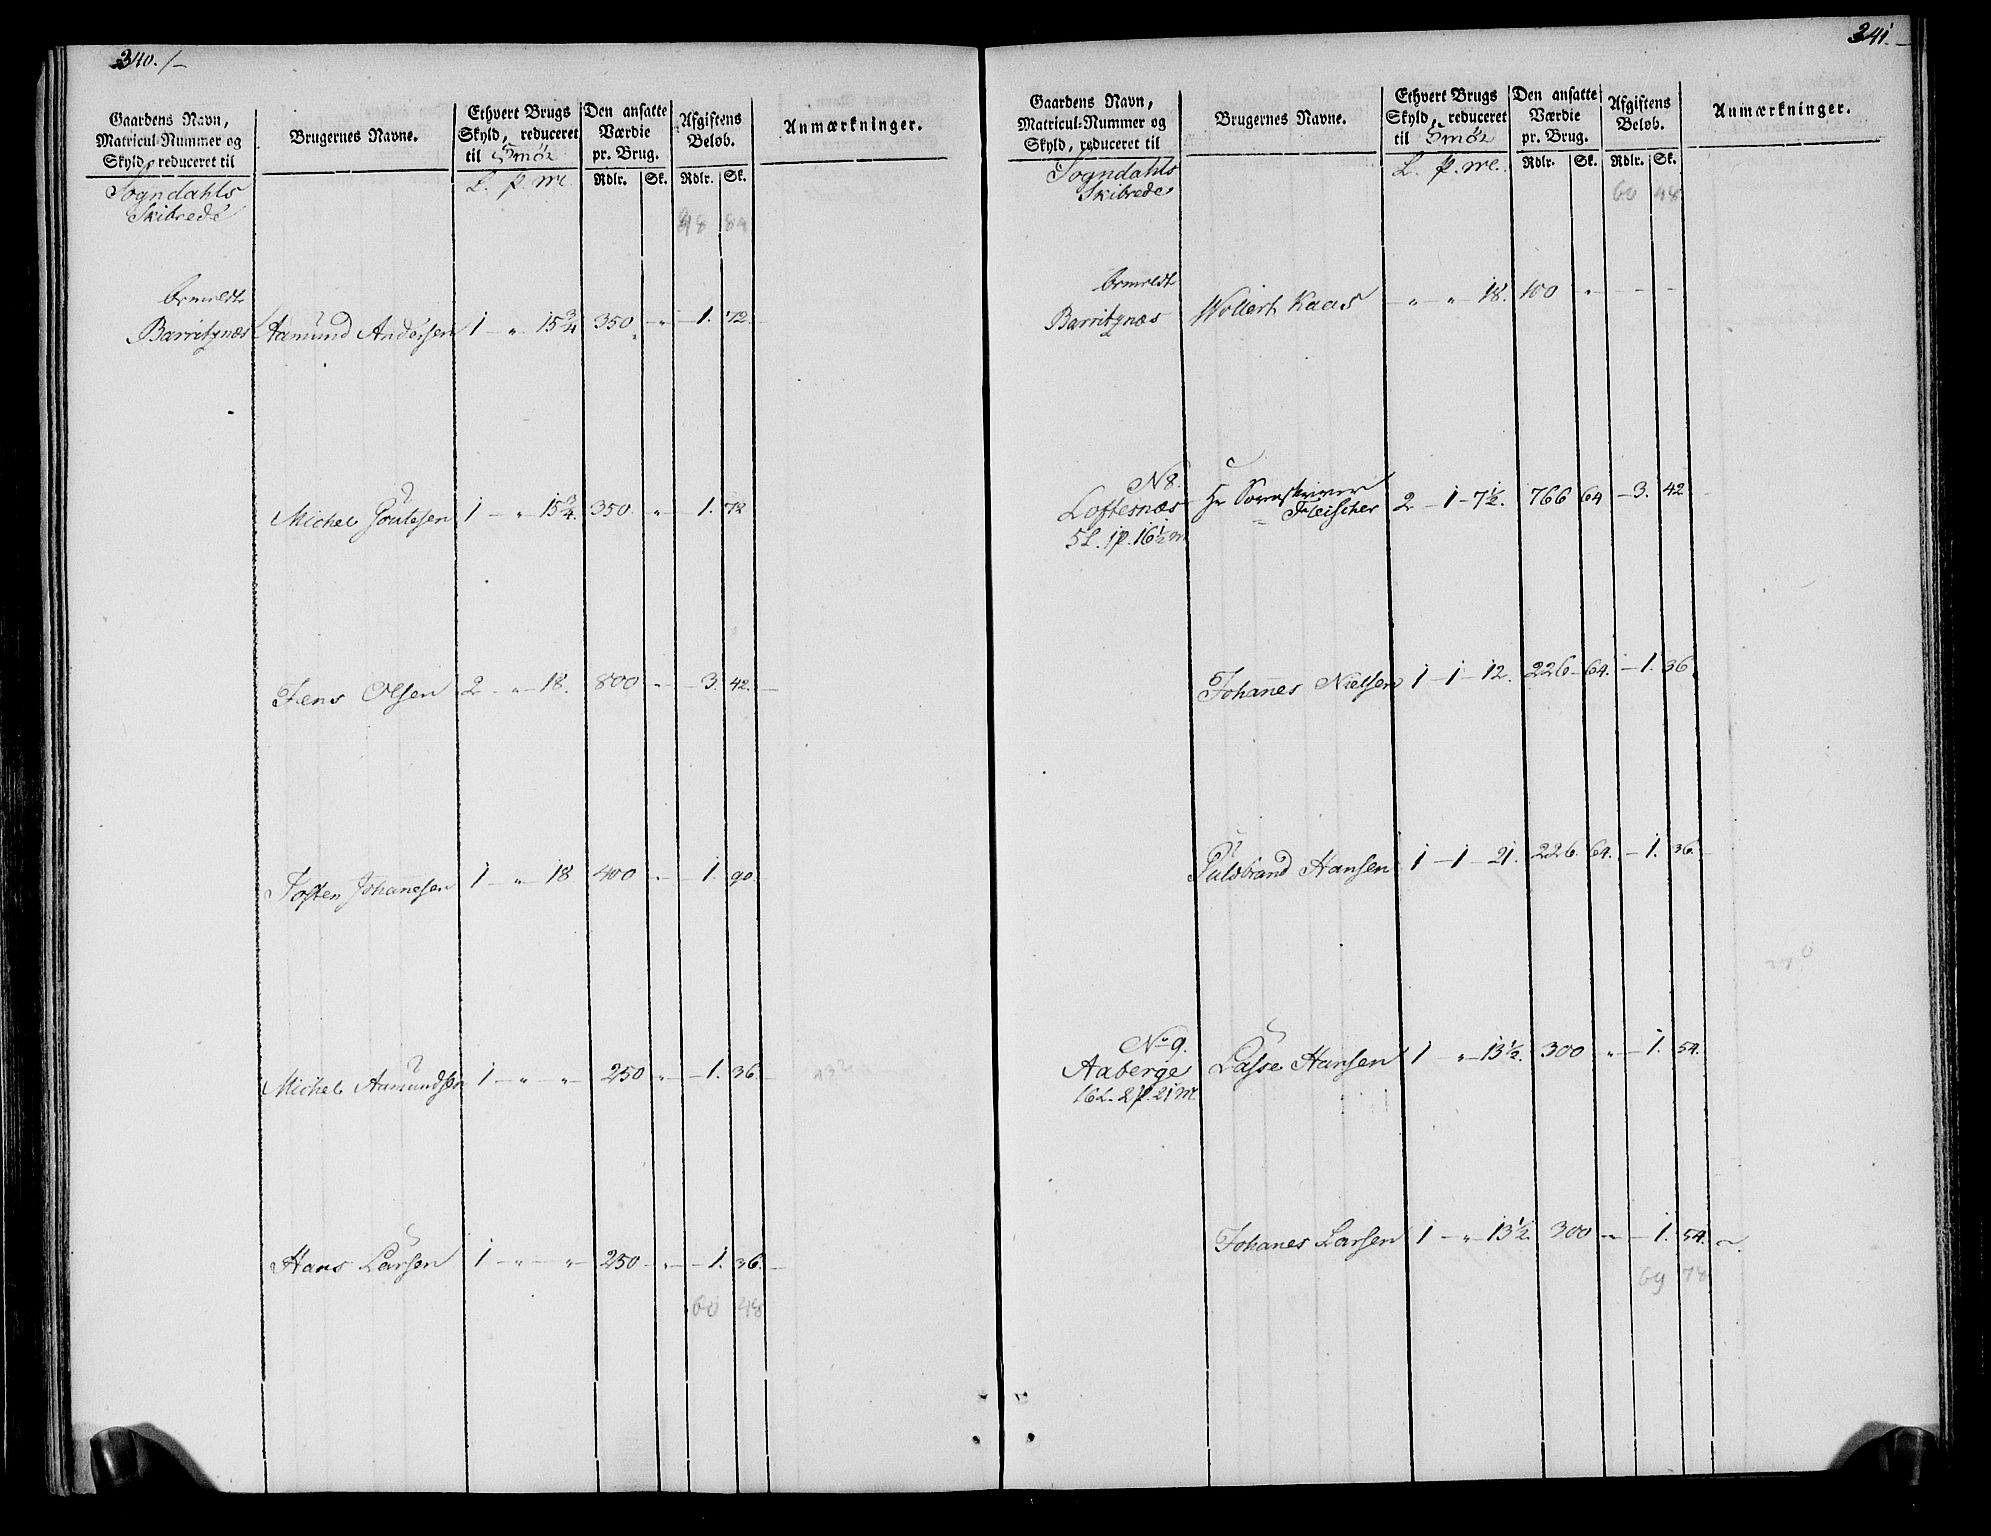 340. /-
Gaardens Navn,
Matricul-Nummer og
Skyld, reduceret til
Brugernes Navne.
Ethvert Brugs
Skyld, reduceret
til Smör
Den ansatte
Værdie
pr. Brug.
Afgiftens
Beløb.
Anmærkninger.
L. p. mk. Rdlr. Sk. Rdlr. Sk.
Sogndahls
Skibrede
48 84
ormeldt
Barritznæs Aamund Andersen 1 - „ 15 3/4 350 „ - 1. 72.
Michel Joutesen 1 - „ 15 3/4. 350. „ - 1. 72
Jens Olsen 2 - „ - 18. 800 „ - 3. 42. -
Joften Johanesen 1 - „ - 18 400 „ - 1. 90.
Michel Aamundsen 1 - „ - „ - 250 „ - 1. 36. -
Hans Larsen 1 - „ - „ - 250 - „ - 1. 36. -
60 48
341. -
Gaardens Navn,
Matricul-Nummer og
Skyld, reduceret til
Brugernes Navne.
Ethvert Brugs
Skyld, reduceret
til Smör
Den ansatte
Værdie
pr. Brug.
Afgiftens
Beløb.
Anmærkninger.
L. p. mk. Rdlr. Sk. Rdlr. Sk.
Sogndahls
Skibrede
60 48
ormeldt
Barritznæs Wollert Kaas - „ „ - 18. 100 „ - - -
N 8.
Loftesnæs Hr Sorenskriver
Fleischer 2 - 1 - 7 1/2. 766 64 - 3. 42
5 L. 1 p. 16 1/2 m
Johanes Nielsen 1 - 1 - 12. 226 - 64. - 1. 36.
Guldbrand Hansen 1 - 1 - 21. 226. 64. - 1. 36. -
No 9.
Aaberge Lasse Hansen 1 - „ - 13 1/2. 300 „ - 1. 54.
16 L. 2 p. 21 m.
Johanes Larsen 1 - „ - 13 1/2. 300 „ - 1. 54. -
69 78